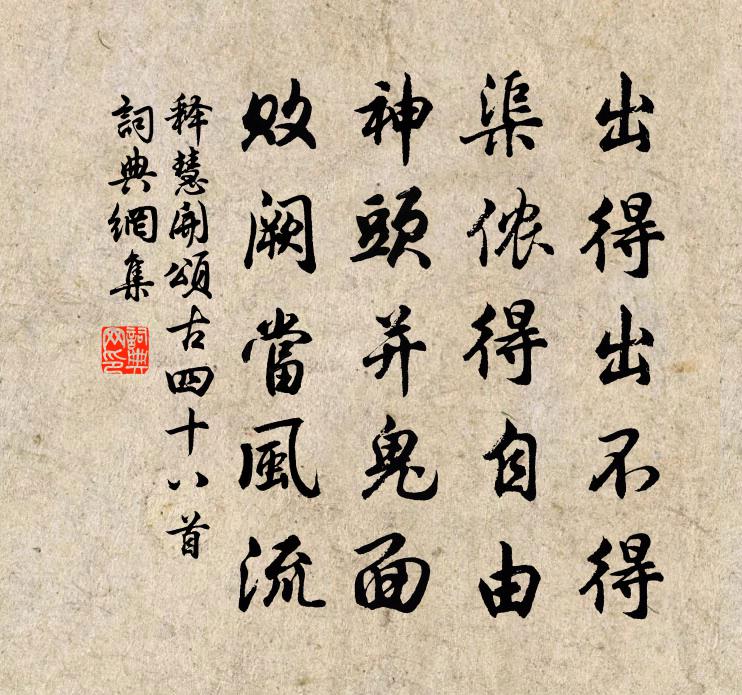 出得出不得
渠侬得自由
神頭并鬼面
敗闕當風流
释慧開頌古四十八首
詞典網集
詞典网印